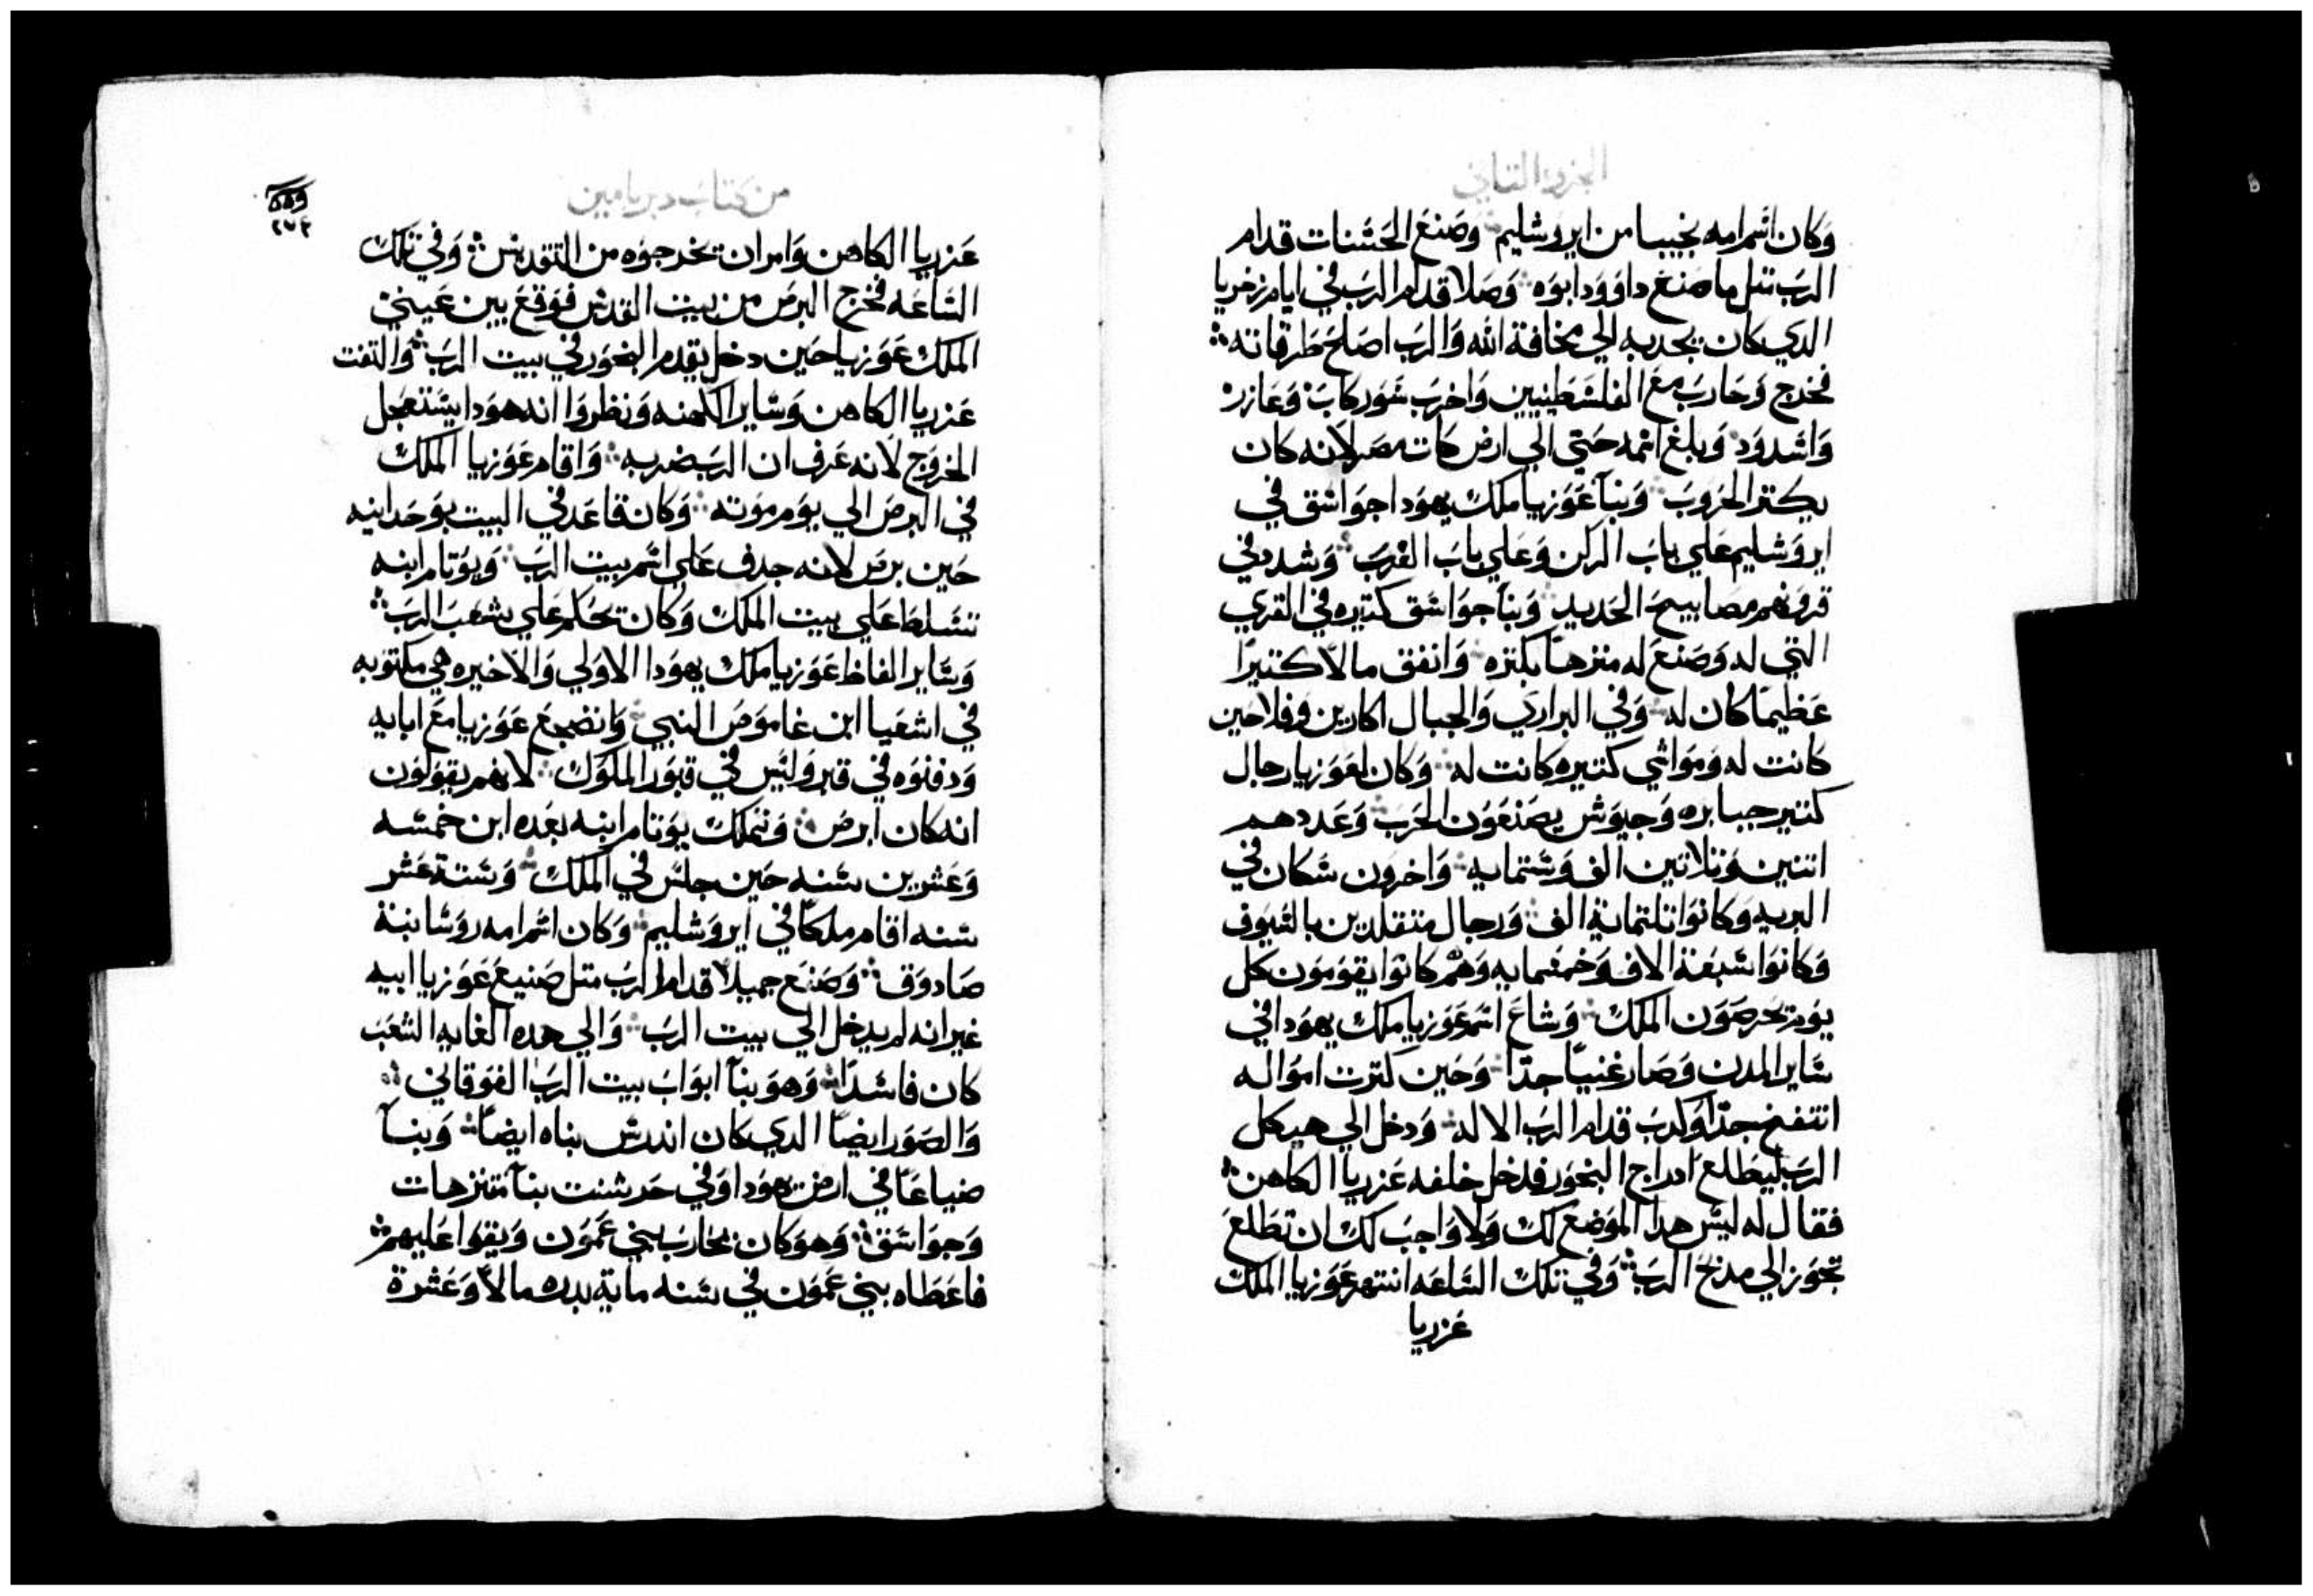 الجزو التاني
وكان اسم امه نجيبا من ايروشليم وصنع الحسنات قدام
الرب متل ما صنع داوود ابوه وصلا قدام الرب في ايام زخريا
الدي كان يجدبه الي مخافة الله والرب اصلح طرقاته
فخرج وحارب مع الفلسطينيين واخرب سور كاب وعازر
واشدود وبلغ اسمه حتي الي ارض كات مصر لانه كان
يكتر الحروب وبنا عوزيا ملك يهودا جواسق في
ايروشليم علي باب الركن وعلي باب الغرب وشدد في
قرونهم مصابيح الحديد وبنا جواسق كتيره في القري
التي له وصنع له منزها بكتره وانفق مالا كتيرا
عظيما كان له وفي البراري والجبال اكارين وفلاحين
كانت له ومواشي كتيره كانت له وكان لعوزيا رجال
كتير جبابره وجيوش يصنعون الحرب وعددهم
اتنين وتلاتين الف وستمايه واخرون سكان في
البريه وكانوا تلتماية الف ورجال متقلدين بالسيوف
وكانوا سبعة الاف وخمسمايه وهم كانوا يقومون كل
يوم يحرصون الملك وشاع اسم عوزيا ملك يهودا في
ساير المدن وصار غنيا جدا وحين كترت امواله
انتفخ جدا وكدب قدام الرب الاله ودخل الي هيكل
الرب ليطلع ادراج البخور فدخل خلفه عزريا الكاهن
فقال له ليس هدا الموضع لك ولا واجب لك ان تطلع
تجوز الي مدبح الرب وفي تلك الساعه انتهر عوزيا الملك
عزريا
من كتاب دبريامين
٢٧٤
عزريا الكاهن وامر ان تخرجوه من التقديس وفي تلك
الساعه فخرج البرص من بيت القدس فوقع بين عيني
الملك عوزيا حين دخل يقدم البخور في بيت الرب والتفت
عزريا الكاهن وساير الكهنه ونظروا انه هودا يستعجل
الخروج لانه عرف ان الرب ضربه واقام عوزيا الملك
في البرص الي يوم موته وكان قاعد في البيت بوحدانيه
حين برص لانه جدف علي اسم بيت الرب ويوتام ابنه
تسلط علي بيت الملك وكان تحكم علي شعب الرب
وساير الفاظ عوزيا ملك يهودا الاولي والاخيره هي مكتوبه
في اشعيا ابن غاموص النبي وانضجع عوزيا مع ابايه
ودفنوه في قبر وليس في قبور الملوك لانهم يقولون
انه كان ابرص وتملك يوتام ابنه بعده ابن خمسه
وعشرين سنه حين جلس في الملك وستة عشر
سنه اقام ملكا في ايروشليم وكان اسم امه روسا بنة
صادوق وصنع جميلا قدام الرب متل صنيع عوزيا ابيه
غير انه لم يدخل الي بيت الرب والي هده الغايه الشعب
كان فاسدا وهو بنا ابواب بيت الرب الفوقاني
والصور ايضا الدي كان اندرس بناه ايضا وبنا
ضياعا في ارض يهودا وفي حرشنت بنا متنزهات
وجواسق وهو كان يحارب بني عمون ويقوا عليهم
فاعطاه بني عمون في سنه ماية بدره مالا وعشرة